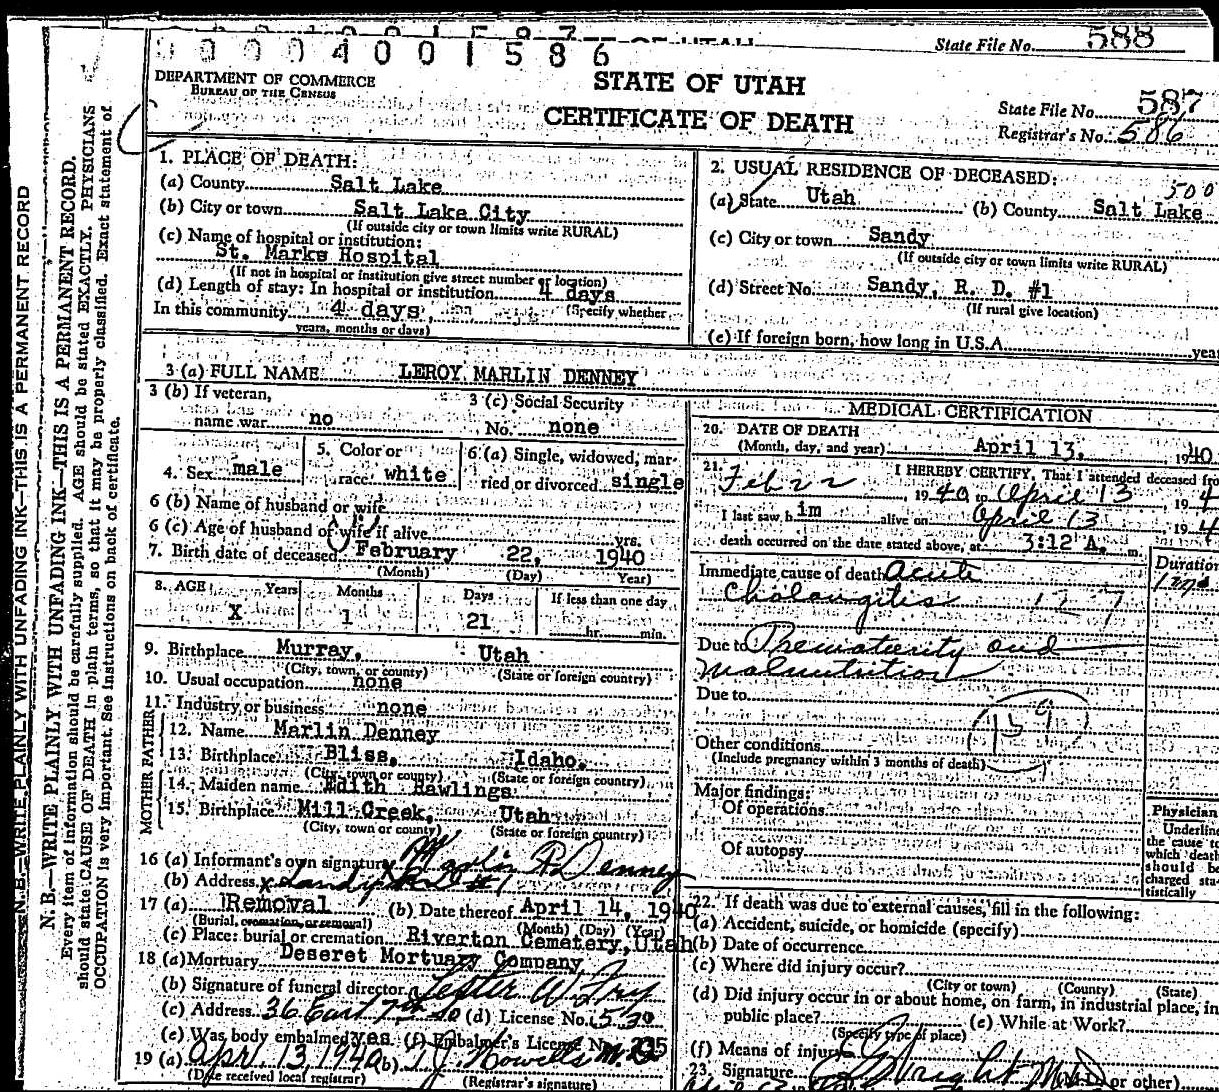 State File No. 588
0000400 1586
DEPARTMENT OF COMMERCE
BUREAU OF THE CENSUS
STATE OF UTAH
CERTIFICATE OF DEATH
State File No. 587
Registrar's No. 586
N.B.—WRITE PLAINLY WITH UNFADING INK—THIS IS A PERMANENT RECORD
N. B.—WRITE PLAINLY WITH UNFADING INK—THIS IS A PERMANENT RECORD.
Every item of information should be carefully supplied. AGE should be stated EXACTLY. PHYSICIANS
should state CAUSE OF DEATH in plain terms, so that it may be properly classified. Exact statement of
OCCUPATION is very important. See instructions on back of certificate.
1. PLACE OF DEATH:
(a) County Salt Lake
(b) City or town Salt Lake City
(If outside city or town limits write RURAL)
(c) Name of hospital or institution:
St. Marks Hospital
(If not in hospital or institution give street number or location)
(d) Length of stay: In hospital or institution 4 days
In this community 4 days (Specify whether
years, months or days)
2. USUAL RESIDENCE OF DECEASED:
500
(a) State Utah (b) County Salt Lake
(c) City or town Sandy
(If outside city or town limits write RURAL)
(d) Street No. Sandy, R. D. #1
(If rural give location)
(e) If foreign born, how long in U.S.A. year
3 (a) FULL NAME LEROY MARLIN DENNEY
3 (b) If veteran,
name war no
3 (c) Social Security
No. none
4. Sex male
5. Color or
race white
6 (a) Single, widowed, mar-
ried or divorced single
6 (b) Name of husband or wife
6 (c) Age of husband or wife if alive yrs.
7. Birth date of deceased February 22, 1940
(Month) (Day) Year)
8. AGE Years Months Days If less than one day
X 1 21 hr. min.
9. Birthplace Murray, Utah
(City, town, or county) (State or foreign country)
10. Usual occupation none
11. Industry or business none
FATHER
12. Name Marlin Denney
13. Birthplace Bliss, Idaho.
(City, town or county) (State or foreign country)
MOTHER
14. Maiden name Edith Rawlings
15. Birthplace Mill Creek, Utah
(City, town or county) (State or foreign country)
16 (a) Informant's own signature Marlin R. Denney
(b) Address x Sandy R D #1
17 (a) Removal (b) Date thereof April 14, 1940
(Burial, cremation, or removal) (Month) (Day) (Year)
(c) Place: burial or cremation Riverton Cemetery, Utah
18 (a) Mortuary Deseret Mortuary Company
(b) Signature of funeral director Lester W Fry
(c) Address 36 East 7th So (d) License No. 530
(e) Was body embalmed yes (f) Embalmer's License No.
19 (a) Apr. 13, 1940 (b) T J Howells M D
(Date received local registrar) (Registrar's signature)
MEDICAL CERTIFICATION
20. DATE OF DEATH
(Month, day, and year) April 13, 1940
21. I HEREBY CERTIFY, That I attended deceased fro
Feb 22, 1940 to April 13, 194
I last saw h im alive on April 13, 194
death occurred on the date stated above, at 3:12 A. m.
Duration
Immediate cause of death Acute
Cholangitis 127
Due to Prematurity and
Malnutrition
Due to
159
Other conditions
(Include pregnancy within 3 months of death)
Major findings:
Of operations
Of autopsy
Physician
Underline
the cause to
which death
should be
charged sta-
tistically
22. If death was due to external causes, fill in the following:
(a) Accident, suicide, or homicide (specify)
(b) Date of occurrence
(c) Where did injury occur?
(City or town) (County) (State)
(d) Did injury occur in or about home, on farm, in industrial place, in
public place? (e) While at Work?
(Specify type of place)
(f) Means of injury
23. Signature Wright M.D. or other)